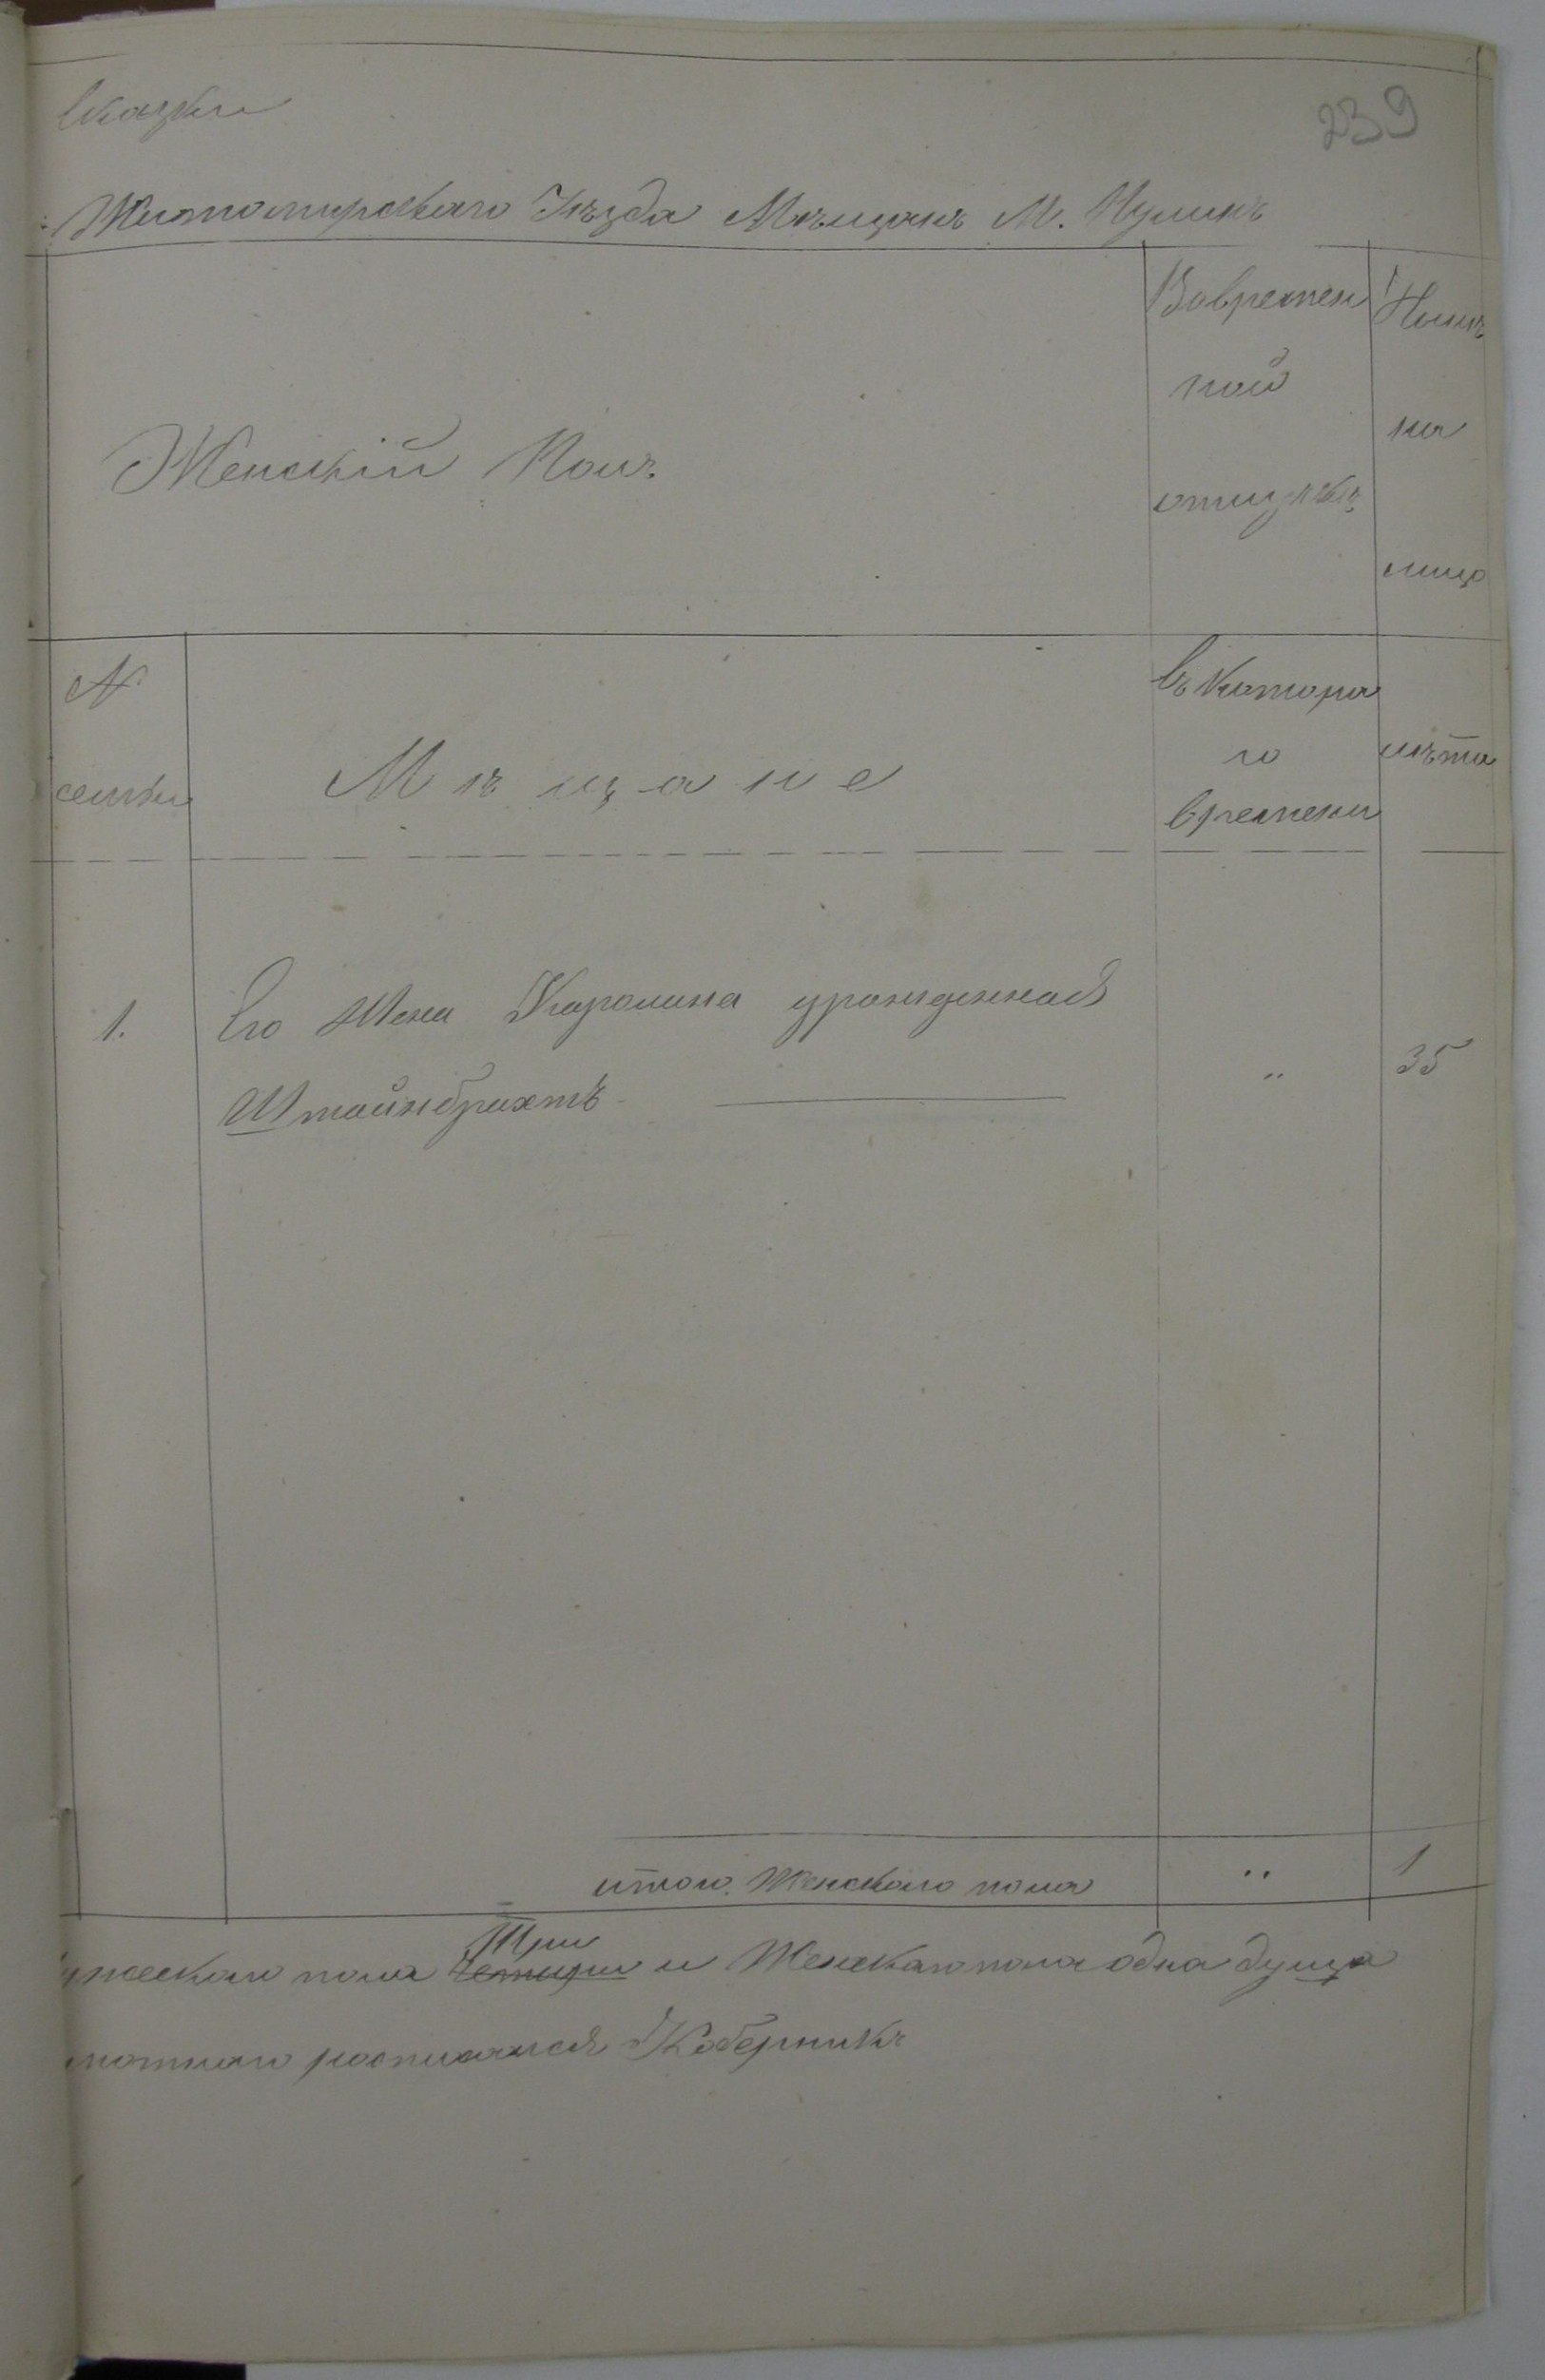 сказки
239
Житомирскаго Уѣзда Мѣщанъ М. Пулинъ
Женскій Полъ
Вовремен
ной
отлучкѣ
Нынѣ
на
лицо
№
семьи
Мѣщане
съ котора
го
времени
лѣта
1. Его Жена Каролина урожденная
Штайнбрихтъ " 35
итого Женскаго пола " 1
Три
ужескаго пола Четыри и Женскаго пола одна душа
мотнаго росписался Коберникъ